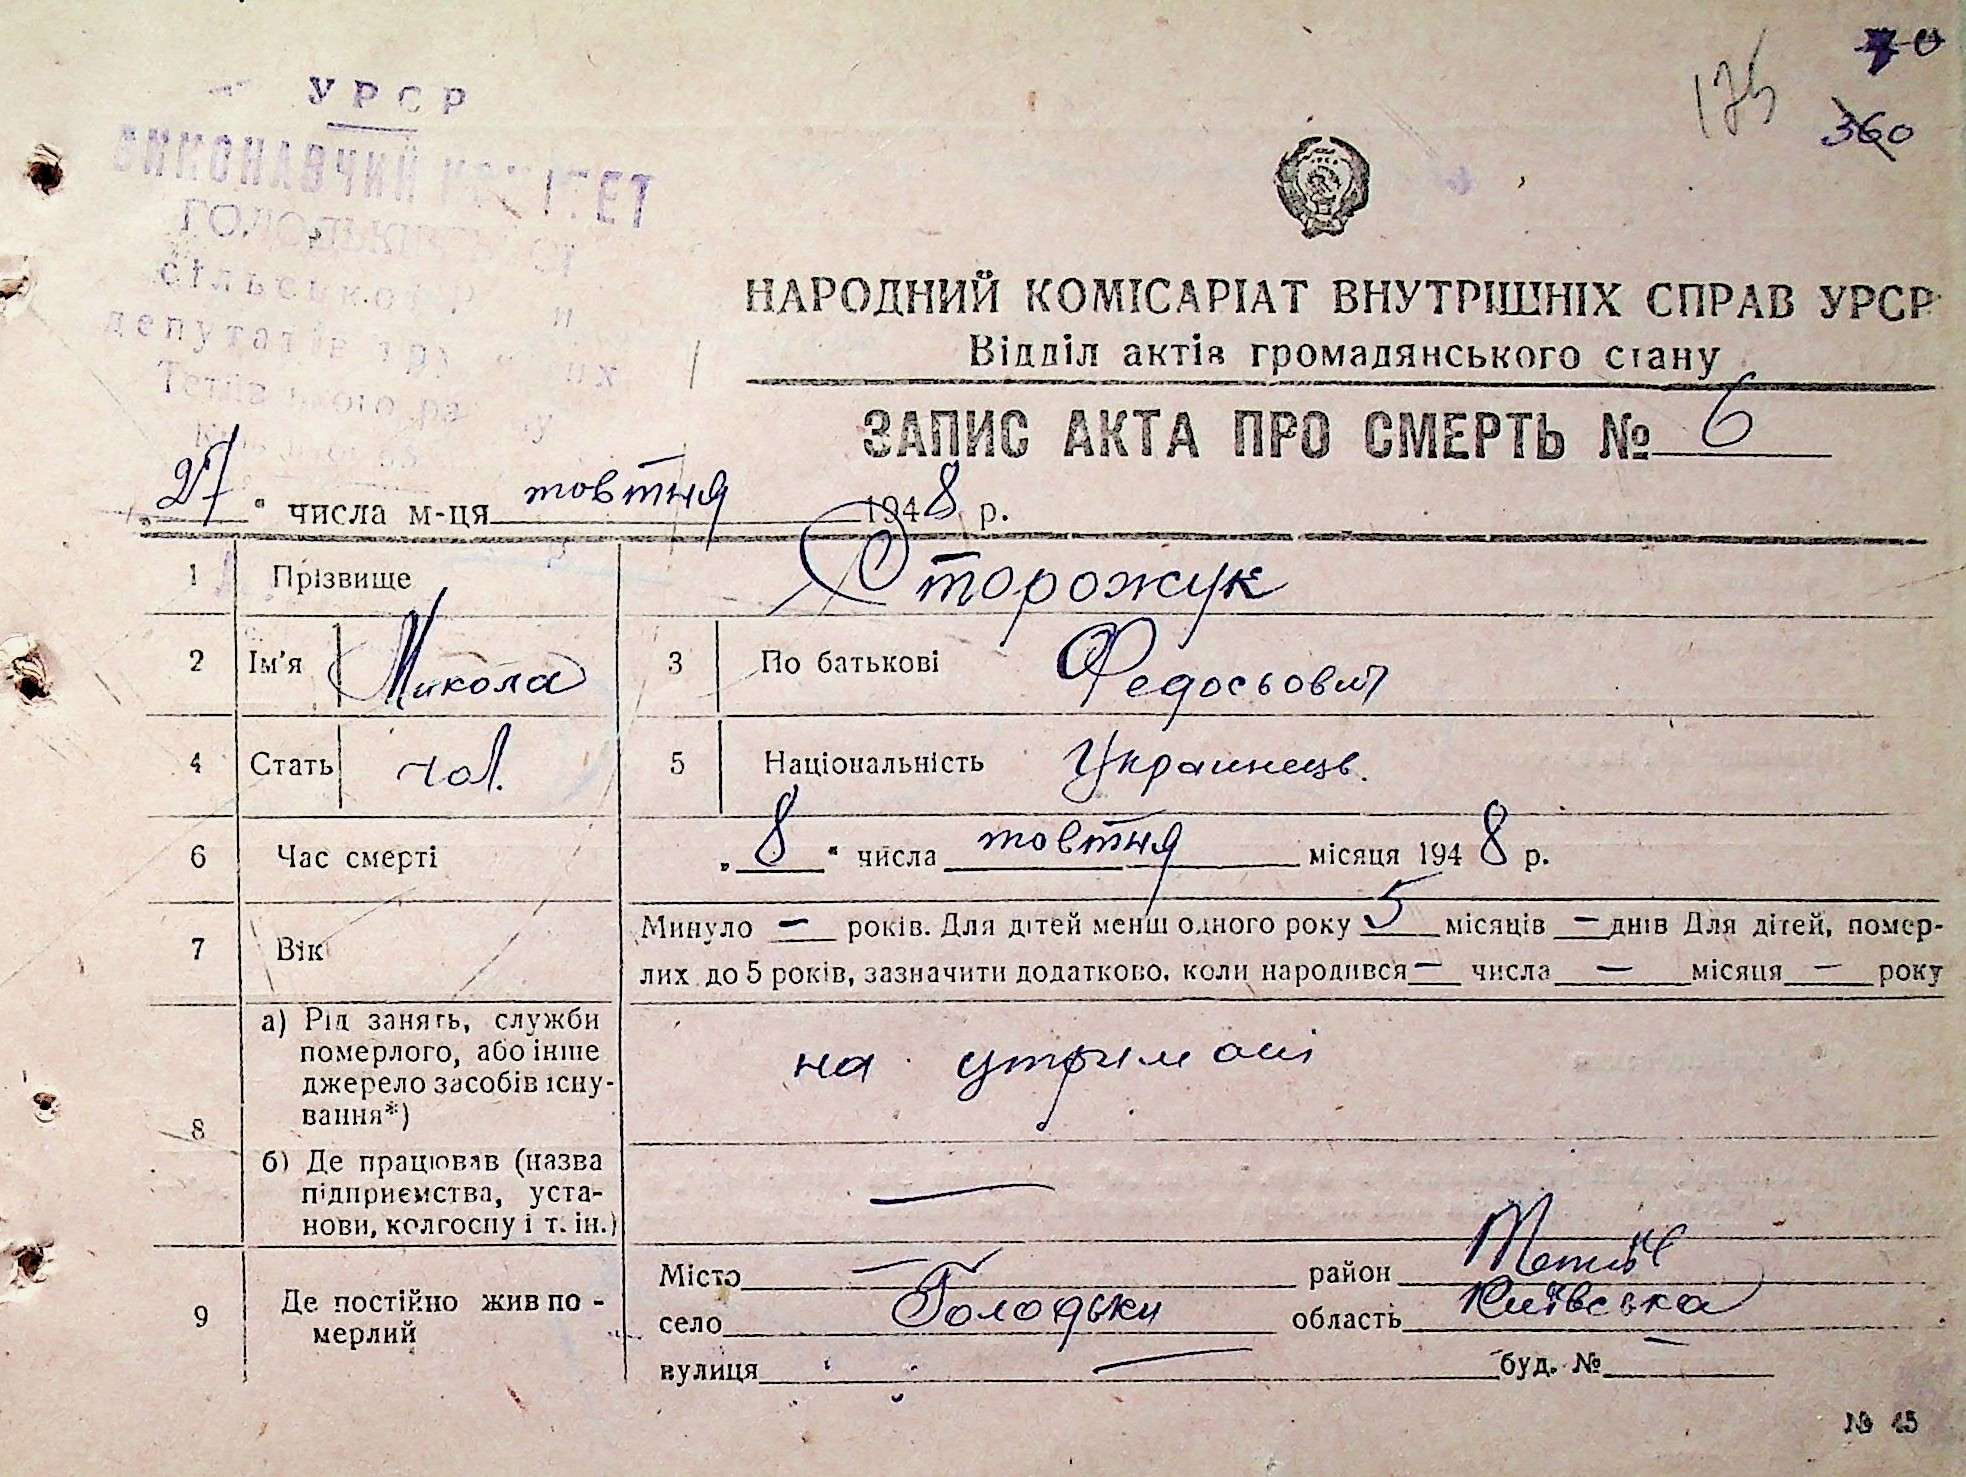 УРСР
ВИКОНАВЧИЙ КОМІТЕТ
сільської
депутатів
175
360
НАРОДНИЙ КОМІСАРІАТ ВНУТРІШНІХ СПРАВ УРСР
Відділ актів громадянського стану
ЗАПИС АКТА ПРО СМЕРТЬ № 6
„27“ числа м-ця жовтня 1948 р.
1 Прізвище Сторожук
2 Ім'я Микола 3 По батькові Федосьович
4 Стать чол. 5 Національність Украинець.
6 Час смерті „8“ числа жовтня місяця 1948 р.
7 Вік Минуло — років. Для дітей менш одного року 5 місяців — днів Для дітей, помер-
лих до 5 років, зазначити додатково, коли народився — числа — місяця — року
8 а) Рід занять, служби
померлого, або інше
джерело засобів існу-
вання*)
на
б) Де працював (назва
підприємства, уста-
нови, колгоспу і т. ін.)
—
9 Де постійно жив по-
мерлий
Місто — район
село Голодьки область Київська
вулиця — буд. № —
№ 45